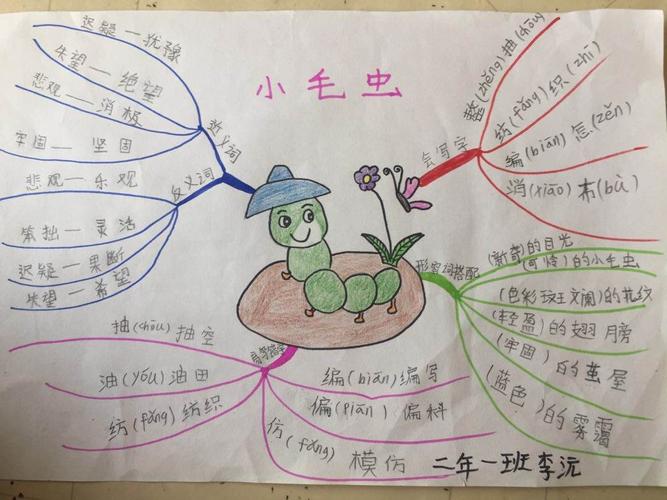 小毛虫
近义词
迟疑—犹豫
失望—绝望
悲观—消极
牢固—坚固
反义词
悲观—乐观
笨拙—灵活
迟疑—果断
失望—希望
会写字
整(zhěng)抽(chōu)
纺(fǎng)织(zhī)
编(biān)怎(zěn)
消(xiāo)布(bù)
形容词搭配
(新奇)的目光
(可怜)的小毛虫
(色彩斑斓)的花纹
(轻盈)的翅膀
(牢固)的茧屋
(蓝色)的雾霭
抽(chōu)抽空
油(yóu)油田
纺(fǎng)纺织
编(biān)编写
偏(piān)偏科
仿(fǎng)
模仿
二年一班李沅